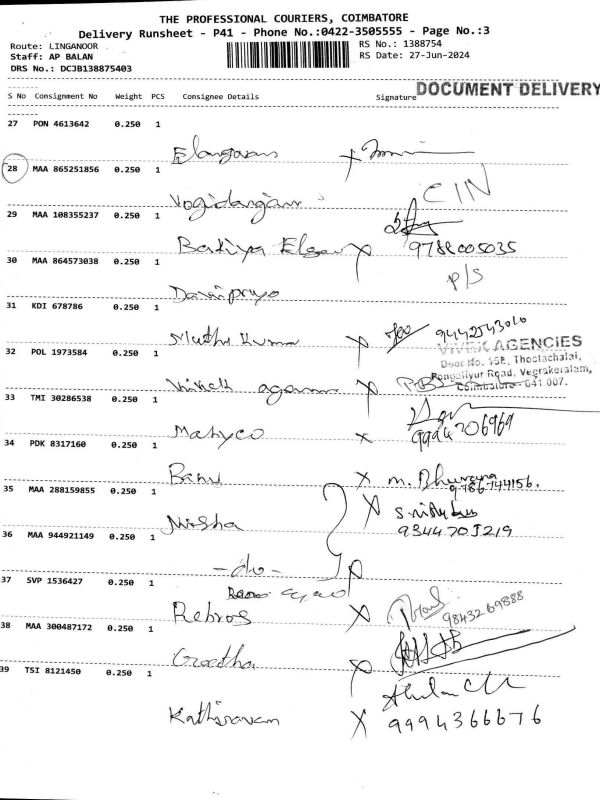 THE PROFESSIONAL COURIERS, COIMBATORE
Delivery Runsheet - P41 - Phone No.:0422-3505555 - Page No.:3
Route: LINGANOOR
RS No.: 1388754
Staff: AP BALAN
RS Date: 27-Jun-2024
DRS No.: DCJB138875403
DOCUMENT DELIVERY
S No Consignment No Weight PCS Consignee Details Signature
27 PON 4613642 0.250 1
Elangovan
28 MAA 865251856 0.250 1
CIN
29 MAA 108355237 0.250 1
9788005035
30 MAA 864573038 0.250 1
P/S
31 KDI 678786 0.250 1
Muthu Kumar
9442543010
32 POL 1973584 0.250 1
VIVEK AGENCIES
Door No. 15B, Thottachalai,
Pongaliyur Road, Veerakeralam,
Coimbatore - 641 007.
33 TMI 30286538 0.250 1
Mahyco X
9994706969
34 PDK 8317160 0.250 1
Banu X
9786744156.
35 MAA 288159855 0.250 1
Nisha X
9344705219
36 MAA 944921149 0.250 1
-do-
37 SVP 1536427 0.250 1
Rebros X
9843269888
38 MAA 300487172 0.250 1
Geetha
39 TSI 8121450 0.250 1
Kathiravan X
9994366676